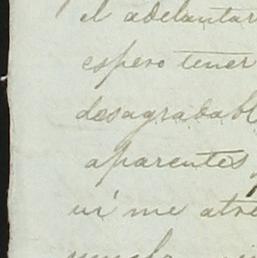 el adelantar
espero tener
desagradabl
aparentes
ni me atre